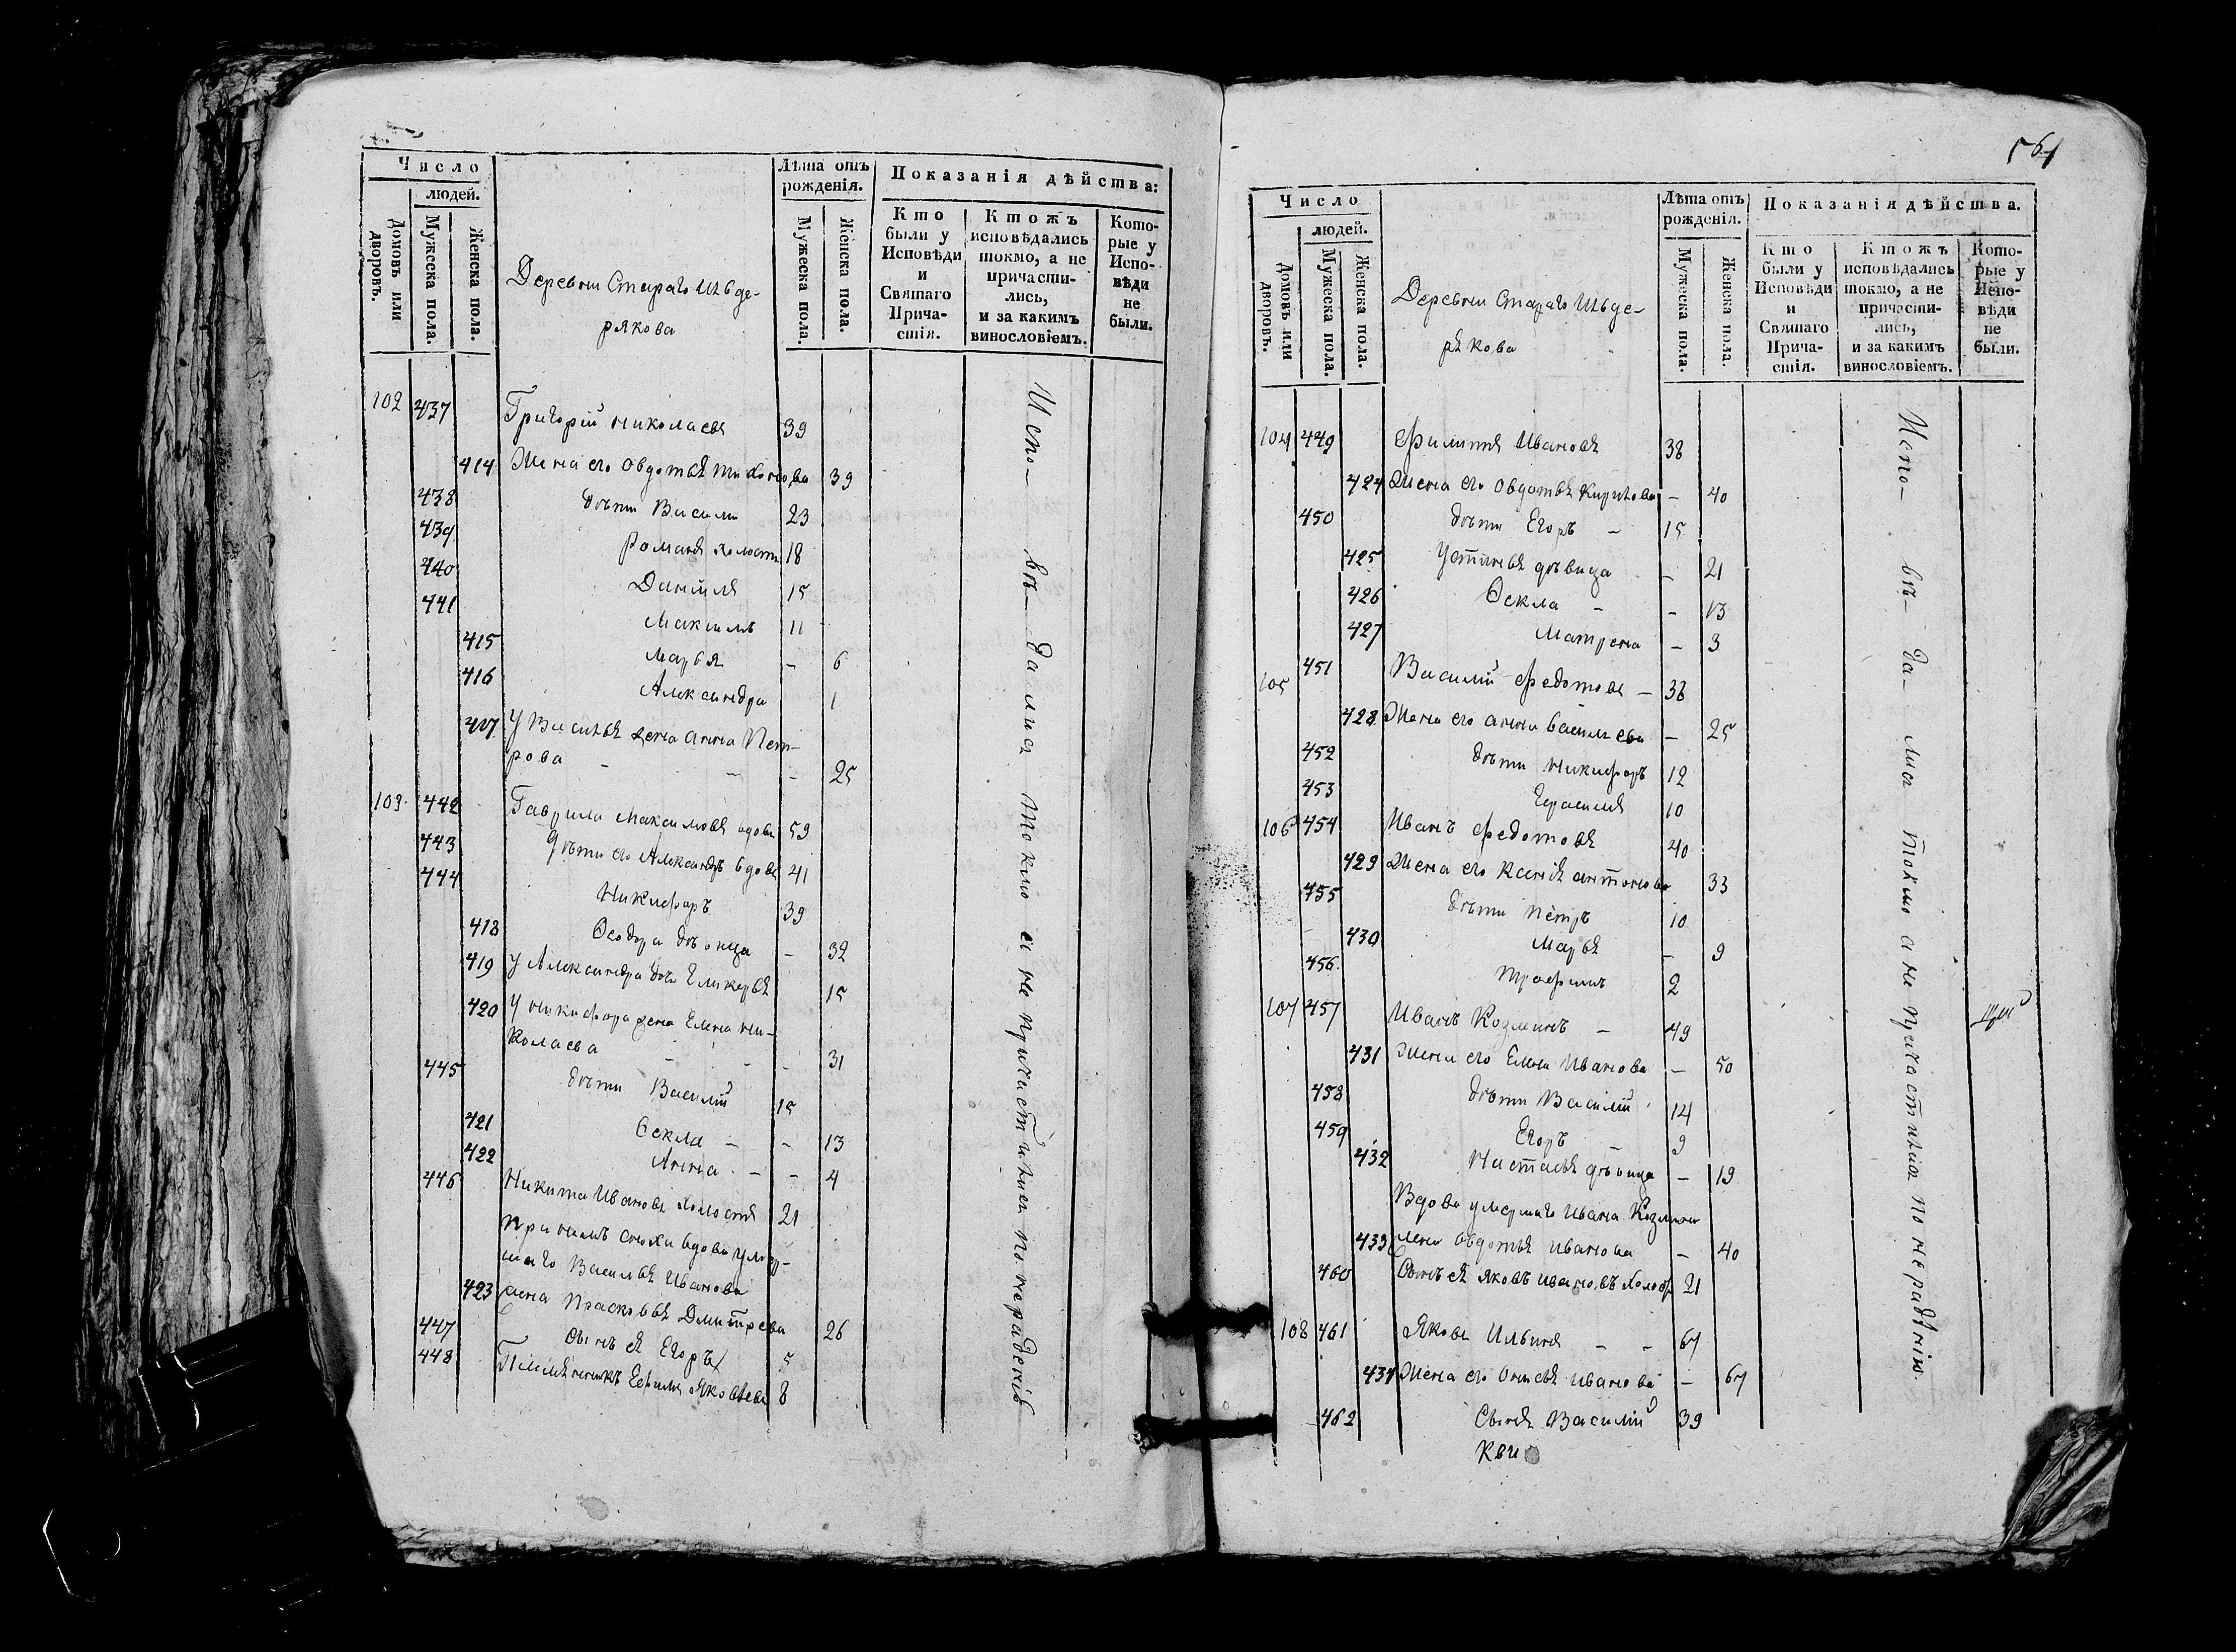 Число
людей.
Домовъ или дворовъ.
Мужеска пола.
Женска пола.
Деревни Стараго Шъбде-
рякова
Лѣта отъ рожденія.
Мужеска пола.
Женска пола.
Показанія дѣйства:
Кто были у Исповѣди и Святаго Прича-стія.
Ктожъ исповѣдались токмо, а не причасти-лись, и за какимъ винословіемъ.
Кото-рые у Испо-вѣди не были.
102 437 Григорій Николаевъ 39
414 Жена его Овдотья Тихонова 39
438 Дѣти Василий 23
439 Романъ холостъ 18
440 Данійлъ 15
441 Максимъ 11
415 Марья - 6
416 Александра 1
417 У Василья жена Анна Пет-
рова - - - 25
103 442 Гаврила Максимовъ вдовъ 59
443 Дѣти его Александръ вдовъ 41
444 Никифоръ 39
418 Ѳеодора дѣвица - 32
419 У Александра дочь Гликерья 15
420 У Никифора жена Елена Ни-
колаева - - - 31
445 Дѣти Василій 15
421 Ѳекла - - 13
422 Анна - - 4
446 Никита Ивановъ холостъ 21
При немъ сноха вдова умер-
шаго Василья Иванова
423 жена Прасковья Дмитрева 26
447 Сынъ ея Егоръ 5
448 Племянникъ Ефимъ Яковлевъ 8
Испо- вѣ- дались токмо а не причастились по нерадению
561
Число
людей.
Домовъ или дворовъ.
Мужеска пола.
Женска пола.
Деревни Стараго Шъбде-
рякова
Лѣта отъ рожденія.
Мужеска пола.
Женска пола.
Показанія дѣйства.
Кто были у Исповѣди и Святаго Прича-стія.
Ктожъ исповѣдались токмо, а не причасти-лись, и за какимъ винословіемъ.
Кото-рые у Испо-вѣди не были.
104 449 Филиппъ Ивановъ 38
424 Жена его Овдотья Кирилова - 40
450 Дѣти Егоръ - 15
425 Устинья дѣвица - 21
426 Ѳекла - - 13
427 Матрена - 3
105 451 Василий Федотовъ - 38
428 Жена его Анна Васильева - 25
452 Дѣти Никифоръ 12
453 Герасимъ 10
106 454 Иванъ Федотовъ 40
429 Жена его Ксенья Антонова 33
455 Дѣти Петръ 10
430 Марья - 9
456 Трофимъ 2
107 457 Иванъ Козминъ - 49
431 Жена его Елена Иванова - 50
458 Дѣти Василій 14
459 Егоръ - 9
432 Настасья дѣвица - 19
Вдова умершаго Ивана Козмина
433 жена Овдотья Иванова - 40
460 Сынъ ея Яковъ Ивановъ холост 21
108 461 Яковъ Ильинъ - - 67
434 Жена его Онисья Иванова - 67
462 Сынъ Василій 39
Испо- вѣ- да- лись токмо а не причастились по нерадѣнію.